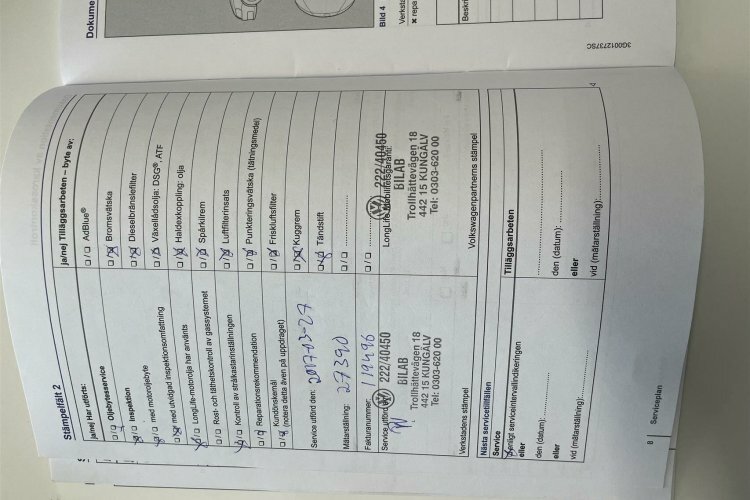 Dokume
Bild 4
Verksta
× repa
Beskri
3G0012737SC
Stämpelfält 2
ja/nej Har utförts:
Oljebytesservice
Inspektion
med motoroljebyte
med utvidgad inspektionsomfattning
LongLife-motorolja har använts
Rost- och täthetskontroll av gassystemet
Kontroll av strålkastarinställningen
Reparationsrekommendation
Kundönskemål
(notera detta även på uppdraget)
Service utförd den: 2017-03-27
Mätarställning: 27390
Fakturanummer: 119496
Service utförd
222/40450
BILAB
Trollhättevägen 18
442 15 KUNGÄLV
Tel: 0303-620 00
Verkstadens stämpel
ja/nej Tilläggsarbeten – byte av:
AdBlue®
Bromsvätska
Dieselbränslefilter
Växellådsolja: DSG®, ATF
Haldexkoppling: olja
Spärkilrem
Luftfilterinsats
Punkteringsvätska (tätningsmedel)
Friskluftsfilter
Kuggrem
Tändstift
222/40450
LongLife Mobilitetsgaranti:
BILAB
Trollhättevägen 18
442 15 KUNGÄLV
Tel: 0303-620 00
Volkswagenpartnerns stämpel
Nästa servicetillfällen
Service
enligt serviceintervallindikeringen
eller
den (datum):
eller
vid (mätarställning):
Tilläggsarbeten
den (datum):
eller
vid (mätarställning):
8 | Serviceplan